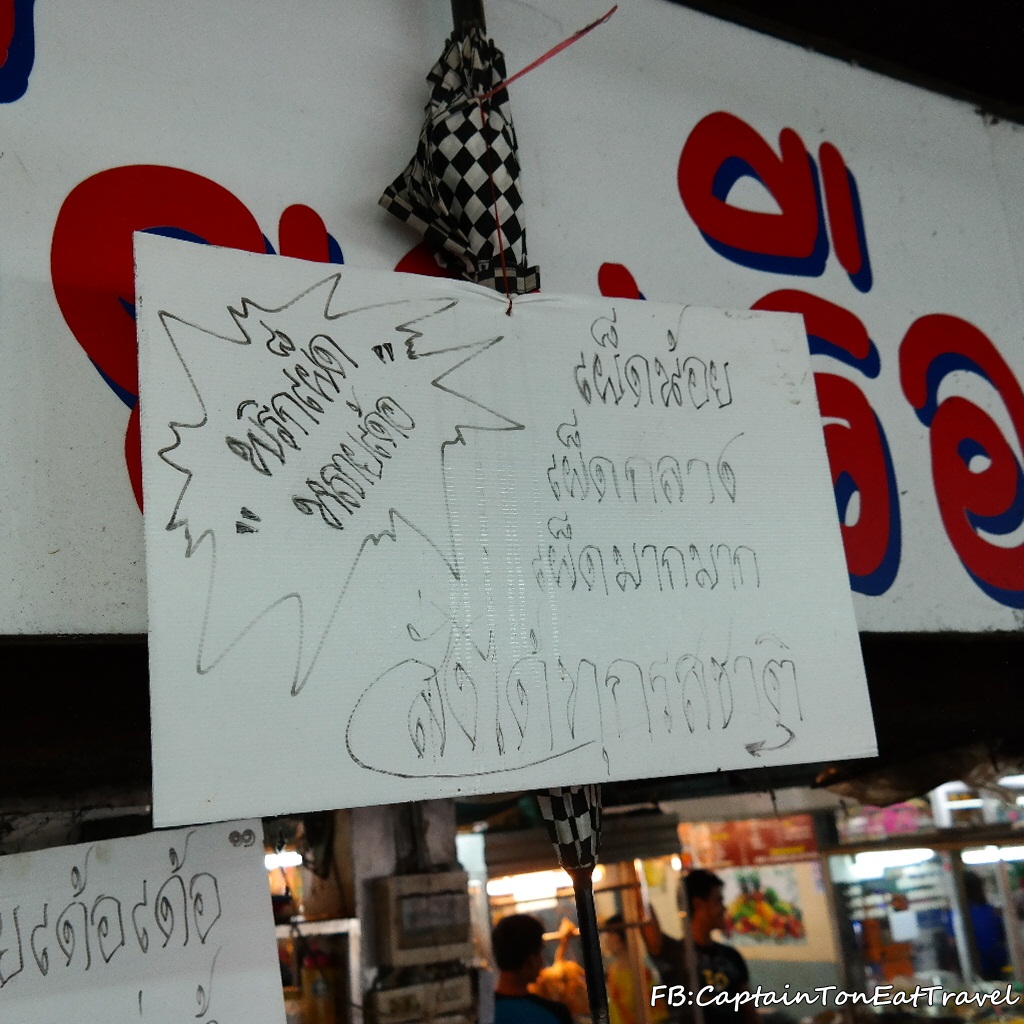 "พริกเผ็ด
หลายเด้อ"
เผ็ดน้อย
เผ็ดกลาง
เผ็ดมากมาก
สั่งได้ทุกรสชาติ
เด้อเด้อ"
FB:CaptainTonEatTravel